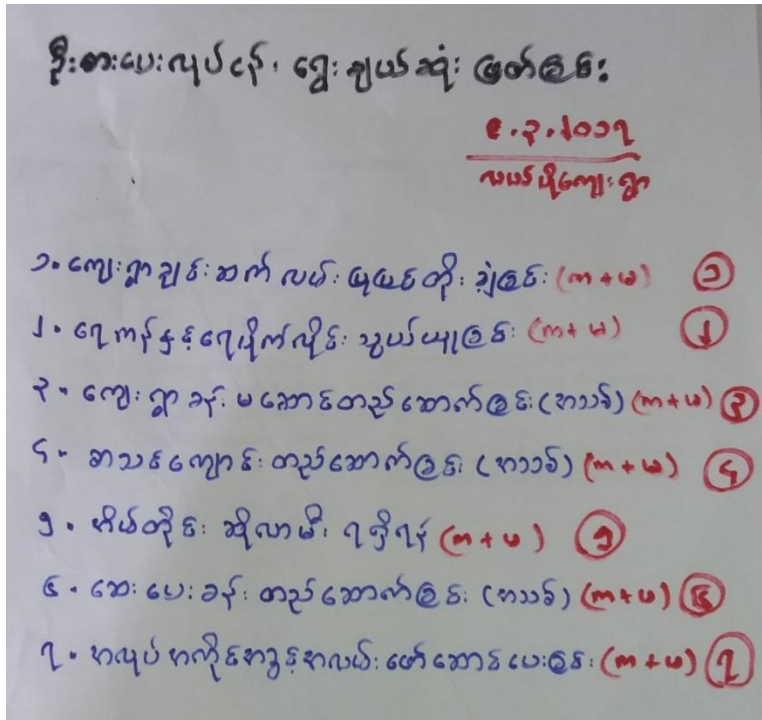 ဦးစားပေးလုပ်ငန်း ရွေးချယ်ဆုံးဖြတ်ခြင်း
၉.၃.၂၀၁၇
လယ်ပိုကျေးရွာ
၁. ကျေးရွာချင်းဆက်လမ်း ပြုပြင်တိုးချဲ့ခြင်း (က + မ) ၁
၂. ရေကန်နှင့်ရေပိုက်လိုင်း သွယ်ယူခြင်း (က + မ) ၂
၃. ကျေးရွာခန်းမဆောင်တည်ဆောက်ခြင်း (အသစ်) (က + မ) ၃
၄. စာသင်ကျောင်းတည်ဆောက်ခြင်း (အသစ်) (က + မ) ၄
၅. အိမ်တိုင်း ဆိုလာမီး ရရှိရန် (က + မ) ၅
၆. ဆေးပေးခန်း တည်ဆောက်ခြင်း (အသစ်) (က + မ) ၆
၇. အလုပ်အကိုင်အခွင့်အလမ်း ဖော်ဆောင်ပေးခြင်း (က + မ) ၇